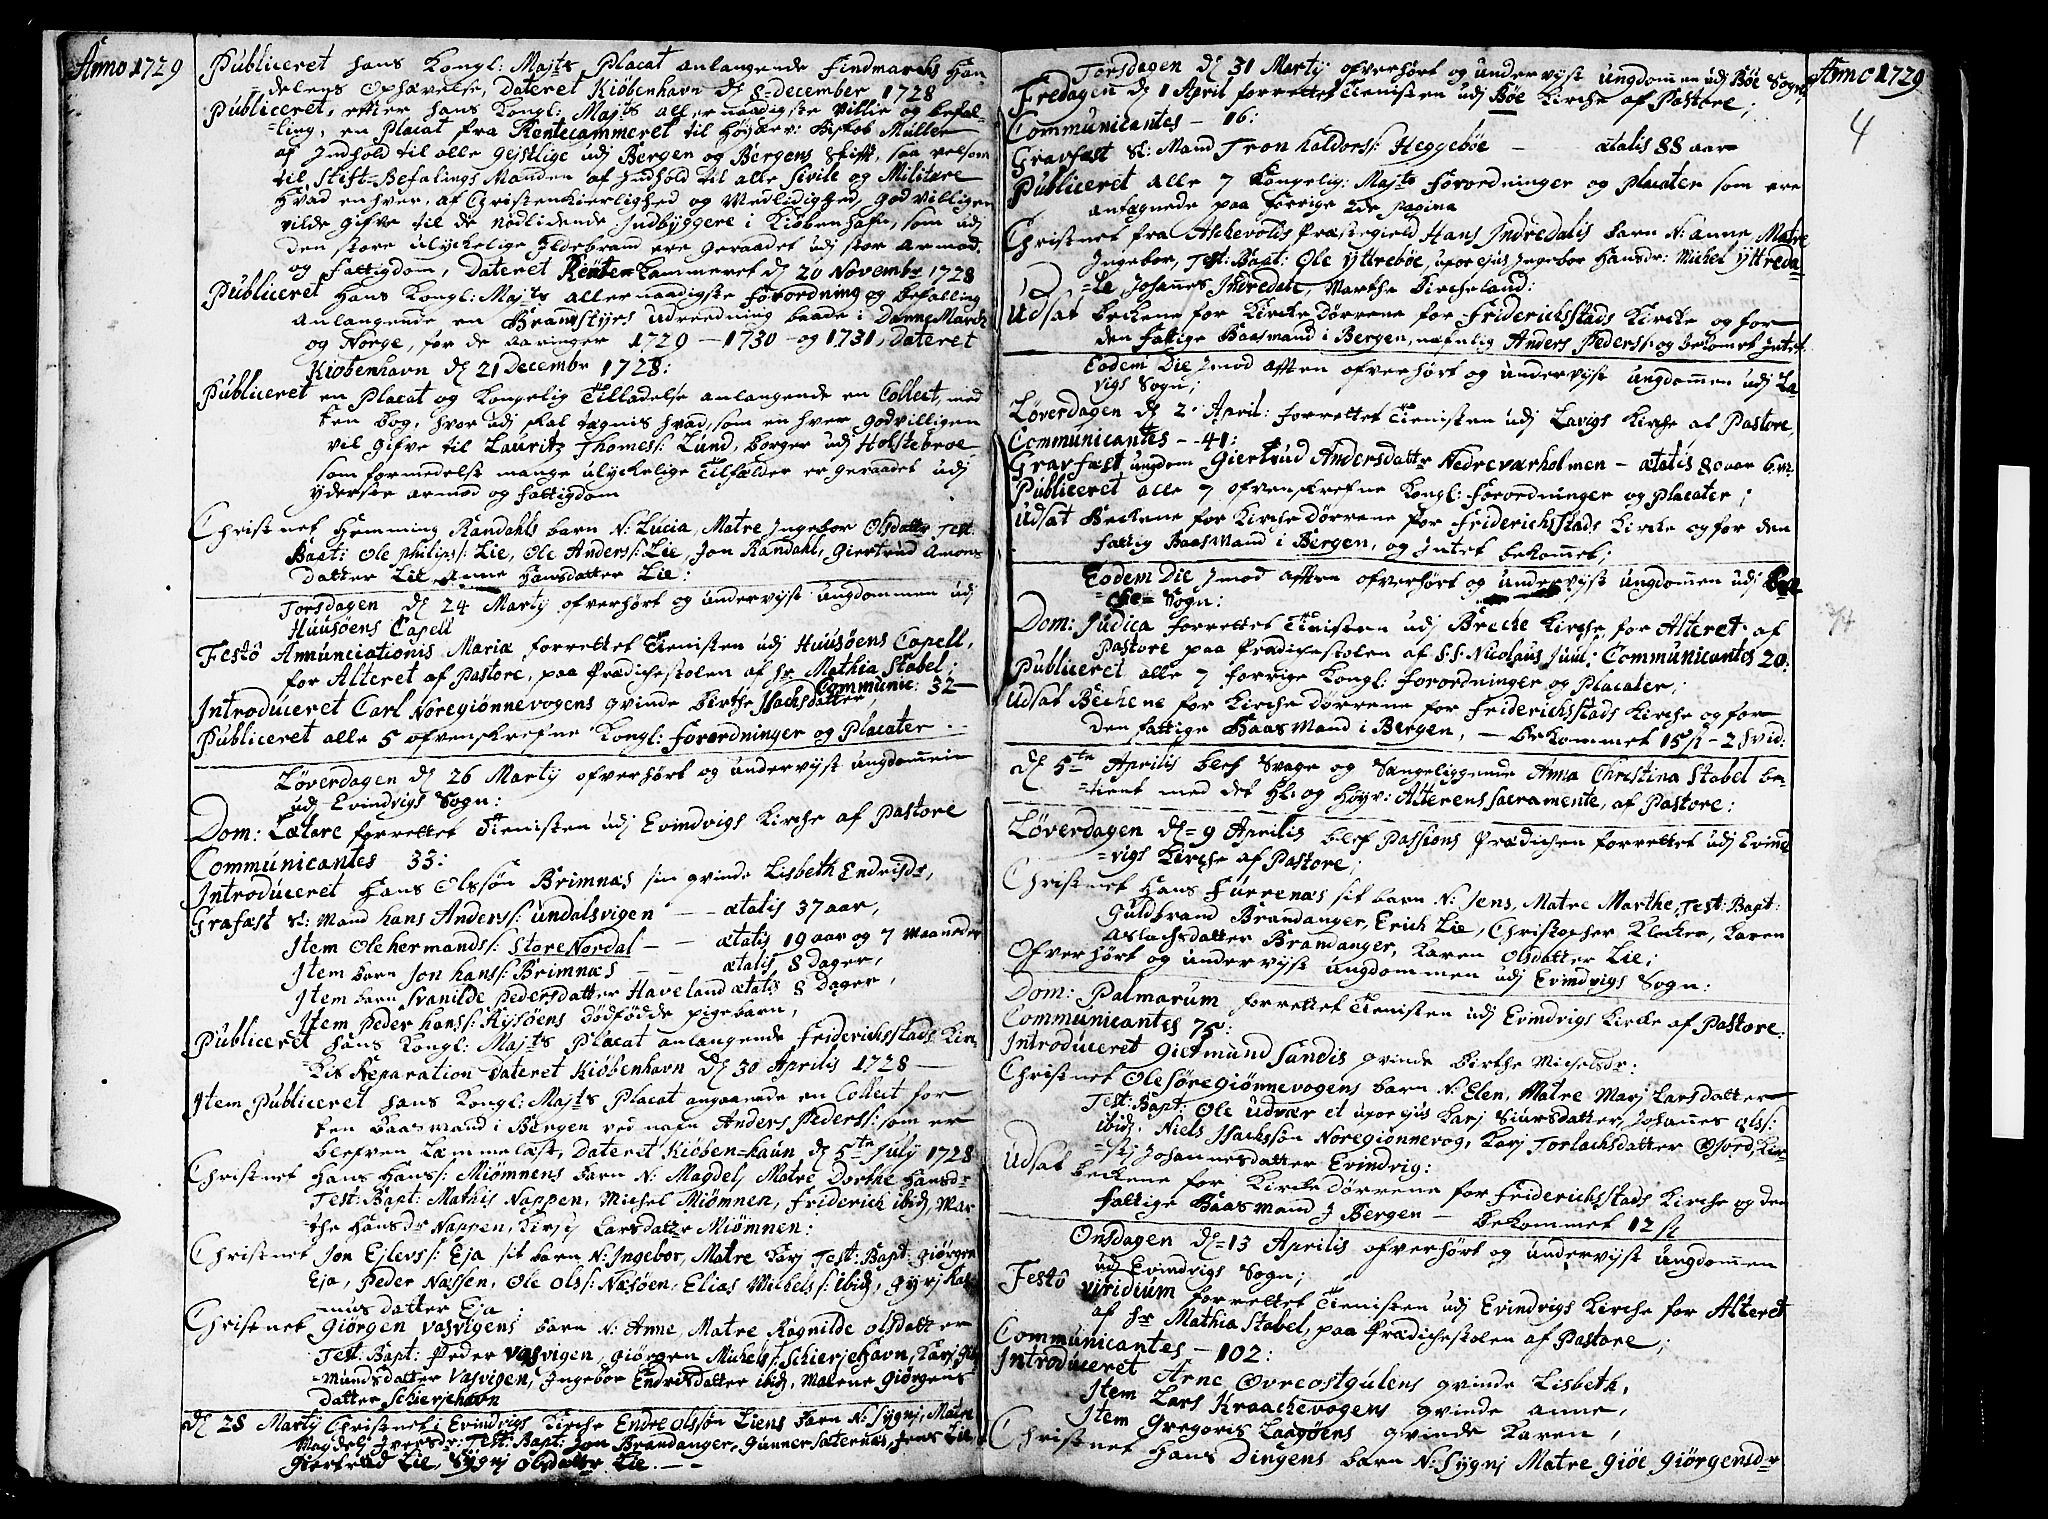 Anno 1729
Publiceret hans Kongl: Majts Placat anlangende Findmarchs Han-
delens Ophævelse, Dateret Kiøbenhavn dῇ 8 december 1728
Publiceret, efter hans Kongl: Majts allernaadigste Villie og befal-
=ling, en Placat fra Rentecammeret til Høyærv: Biskob Müller
af Indhold til alle gejstlige udj Bergen og Bergens Stift, saa velsom
til Stift-Befalings Manden af Indhold til alle Sivile og Militare
Hvad enhver, af Christenkierlighed og Medlidighed, godvilligen
vilde gifve til de nødlidende Indbyggere i Kiøbenhafn, som udj
den store ulyckelige Ildebrand ere geraadet udj stor armod
og fattigdom, Dateret Rentekammeret dῇ 20 Novembr 1728
Publiceret Hans Kongl: Majts allernaadigste forordning og befalling
anlangende en Brandstyrs udreedning baade i DanneMarck
og Norge, for de aaringer 1729 - 1730 - og 1731, Dateret
Kiøbenhavn dῇ 21 Decembr 1728:
Publiceret en Placat og Kongelig Tilladelse anlangende en Collect, med
ten bog, hvor udj skal tegnis hvad, som en hver godvilligen
vil gifve til Lauritz Thomess: Lund, borger udj Holstebroe,
som formedelst mange ulyckelige Tilfælder er geraadet udj
yderste armod og fattigdom
Christnet Hemming Randahls barn N: Lucia, Matre Ingebor Olsdattr Test:
Bapt: Ole Philips: Lie, Ole Anderss: Lie, Jon Randahl, Giertrud Amons
datter Lie, Anne Hansdatter Lie:
Torsdagen dῇ 24 Martij ofverhørt og undervijst ungdommen udj
Huusøens Capell
Festô Annunciationis Mariæ forrettet Tienisten udj Huusøens Capell,
for Alteret af Pastore, paa Prædichestolen af Hr Mathia Stabel;
Communic: 32
Introduceret Carl Noregiønnevogens qvinde birthe Isachsdatter,
Publiceret alle 5 ofvenskrefne Kongl: forordninger og Placater.
Løverdagen dῇ 26 Martij ofverhørt og undervijst ungdommen
udj Evindvigs Sogn:
Dom: Lætare forrettet Tienisten udj Evindvigs Kirche af Pastore
Communicantes 33:
Introduceret Hans Olssøn Brimnæs sin qvinde Lisbeth Endrisdr,
Grafæst Sl: Mand hans Anderss: undalsvigen - - ætatis 37 aar,
Item Ole hermands: Store Nordal - - ætatis 19 aar og 7 Maaneder
Item barn Jon hanss: Brimnæs - - ætatis 8 Dager,
Item barn Svanilde Pedersdatter Haveland ætatis 8 Dager,
Item Peder hanss: Rysøens dødfødde pigebarn,
Publiceret hans Kongl: Majts Placat anlangende Friderichsstads Kir-
Kis Reparation Dateret Kiøbenhavn dῇ 30 Aprilis 1728
Item Publiceret hans Kongl: Majts Placat angaaende en Collect for
ten baasmand i Bergen ved nafn Anders Pederss: som er
blefven Lemmelæst, Dateret Kiøben=haun dῇ 5te July 1728
Christnet Hans Hanss: Miømnens barn N: Magdelj Matre Dorthe Hansdr
Test: Bapt: Mathis Nappen, Michel Miømnen, Friderich ibid, Mar-
the Hansdr Nappen, Kirstj Larsdattr Miømnen:
Christnet Jon Ejlevs: Eja sit barn N: Ingebor, Matre Karj Test: Bapt: Giørgen
Eja, Peder Næssen, Ole Ols: Næsøen, Elias Michels: ibid, Gyrj Ras-
mus datter Eja
Christnet Giørgen Vasvigens barn N: Anne, Matre Ragnilde Olsdatter
Test: Bapt: Peder Vasvigen, Giørgen Michels: Schierjehavn, Karj
=mundsdatter Vasvigen, Ingebor Endrisdatter ibid, Marene Giørgens
datter Schierjehavn
dῇ 28 Martij Christnet i Evindvigs Kirche Endre Olssøn Liens barn N: Sygnj, Matre
Magdelj Iversdr: Test: Bapt: Jon Brandanger, Gunner Sæternæs, Jens Lie
Giertrud Lie, Sygnj Olsdattr Lie.
Torsdagen dῇ 31 Martij ofverhørt og undervijst ungdommen udj Bøe Sogn,
Fredagen dῇ 1 April forrettet Tienisten udj Bøe Kirche af Pastore;
Communicantes - 16:
Gravfæst Sl: Mand Tron haldors: Heggebøe - ætatis 88 aar
Publiceret alle 7 Kongelig: Majts Forordninger og Placater som ere
antegnede paa forrige 2de pagina
Christnet fra Aschevolds Præstegield Hans Indredalis barn N: Anne Matre
Ingebor, Test: Bapt: Ole Yttrebøe, uxor ejus Ingebor Hansdr: Michel Yttreda-
=le Johannes Indredale, Marthe Kircheland:
Udsat beckene for Kirche dørrene for Friderichsstads Kirche og for
den fattige Baasmand i Bergen, nafnlig Anders Peders: og bekomet Intet
Eodem Die imod afften ofverhørt og undervijst ungdommen udj La-
vigs Sogn;
Løverdagen dῇ 2 April: forrettet Tienisten udj Lavigs Kirche af Pastore,
Communicantes - 41:
Gravfæst ungdom Giertrud Andersdattr Nedreværholmen - ætatis 8 aar 6
Publiceret alle 7 ofvenskrefne Kongl: Forordninger og Placater;
Udsat Beckene for Kirche dørrene for Friderichsstads Kirche og for den
fattig BaasMand i Bergen, og Intet bekommet;
Eodem Die Imod afften ofverhørt og undervijst ungdommen udj Bre-
=che= Sogn:
Dom: Judica forrettet Tienisten udj Breche Kirche for Alteret af
Pastore paa Prædichestolen af S.S. Nicolaus Juul; Communicantes 20:
Publiceret alle 7 forrige Kongl: forordninger og Placater;
Udsat Beckene for Kirche dørrene for Friderichsstads Kirche og for
den fattige BaasMand i Bergen, - Bekommet 15 s - 2 hvid:
dῇ 5te Aprilis blef Svage og Sængeliggende Anna Christina Stabel be-
=tient med det Hl: og Høyv: Alterens Sacramente, af Pastore:
Løverdagen dῇ 9 Aprilis blef Passions Prædichen forrettet udj Evind
=vigs Kirche af Pastore;
Christnet Hans Furrenæs sit barn N: Jens, Matre Marthe, Test: Bapt:
Guldbrand Brandanger, Erich Lie, Christopher Klocker, Karen
Aslachsdatter Brandanger, Karen Olsdatter Lie;
Ofverhørt og undervijst ungdommen udj Evindvigs Sogn:
Dom: Palmarum forrettet Tienisten udj Evindvigs Kirche af Pastore:
Communicantes 75:
Introduceret Giermund Sandis qvinde birthe Michelsdr:
Christnet Ole Søregiønnevogens barn N: Elen, Matre Marj Larsdatter
Test: Bapt: Ole Udvær et uxor ejus Karj Siursdatter, Johannes Ols:
ibid, Niels Isachssøn Noregiønnevog, Karj Torlachsdatter Ofjord, Kir-
=stj Johannesdatter Evindvig:
Udsat beckene for Kirche dørrene for Friderichsstads Kirche og den
fattige BaasMand i Bergen - bekommet 12 s
Onsdagen dῇ 13 Aprilis ofverhørt og undervijst ungdommen
udj Evindvigs Sogn;
Festô viridium forrettet Tienisten udj Evindvigs Kirche for Alteret
af Hr Mathia Stabel, paa Prædichestolen af Pastore;
Communicantes - 102:
Introduceret Arne Øvreostgulens qvinde Lisbeth,
Item Lars Kraachevogens qvinde anne,
Item Gregoris Laagøens qvinde Karen,
Christnet Hans Dingens barn N: Sygnj Matre Giøe Giørgensdr
Anno 1729
4